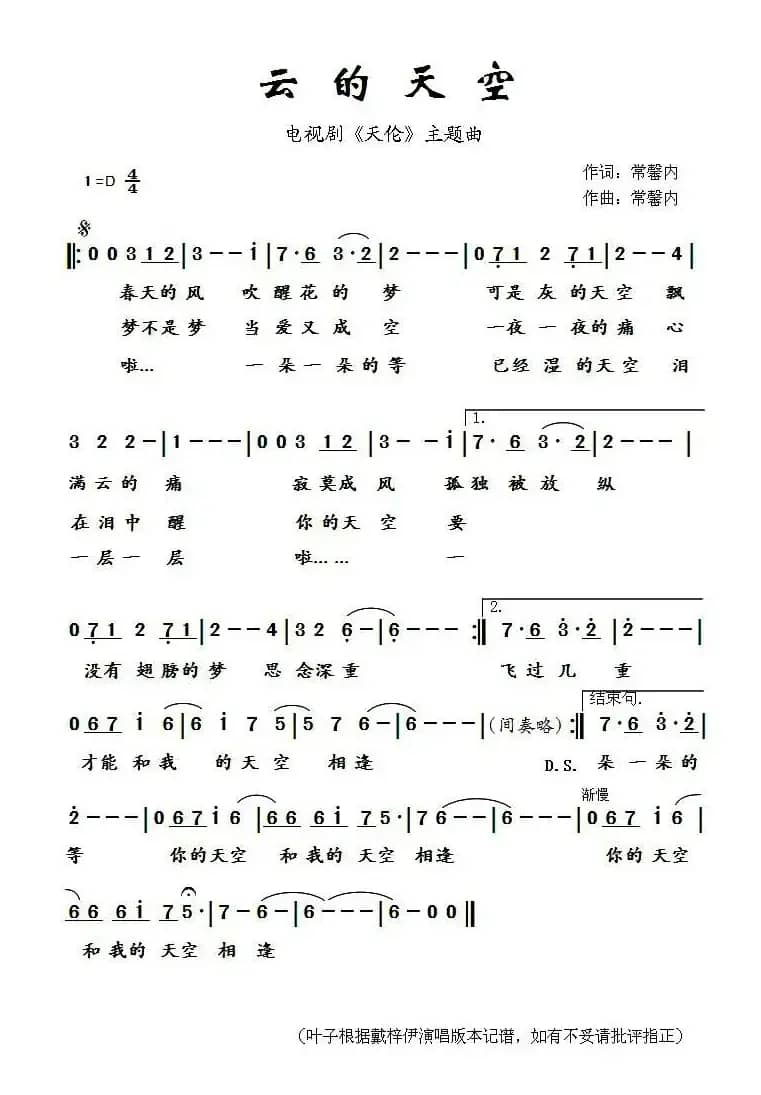 云的天空
电视剧《天伦》主题曲
1=D 4/4
作词：常馨内
作曲：常馨内
‖: 0 0 3 1 2 | 3 - - i | 7· 6 3· 2 | 2 - - - | 0 7 1 2 7 1 | 2 - - 4 |
春天的风 吹醒花的梦 可是灰的天空飘
梦不是梦 当爱又成空 一夜一夜的痛心
啦... 一朵一朵的等 已经湿的天空泪
1.
3 2 2 - | 1 - - - | 0 0 3 1 2 | 3 - - i | 7· 6 3· 2 | 2 - - - |
满云的痛 寂莫成风 孤独被放纵
在泪中醒 你的天空要
一层一层 啦... ... 一
2.
0 7 1 2 7 1 | 2 - - 4 | 3 2 6 - | 6 - - - :‖ 7· 6 3· 2 | 2 - - - |
没有翅膀的梦 思念深重 飞过几重
结束句.
0 6 7 i 6 | 6 i 7 5 | 5 7 6 - | 6 - - - | (间奏略) :‖ 7· 6 3· 2 |
才能和我 的天空 相逢 D.S. 朵一朵的
渐慢
2 - - - | 0 6 7 i 6 | 6 6 6 i 7 5· | 7 6 - - | 6 - - - | 0 6 7 i 6 |
等 你的天空 和我的天空相逢 你的天空
6 6 6 i 7 5· | 7 - 6 - | 6 - - - | 6 - 0 0 ‖
和我的天空相逢
（叶子根据戴梓伊演唱版本记谱，如有不妥请批评指正）